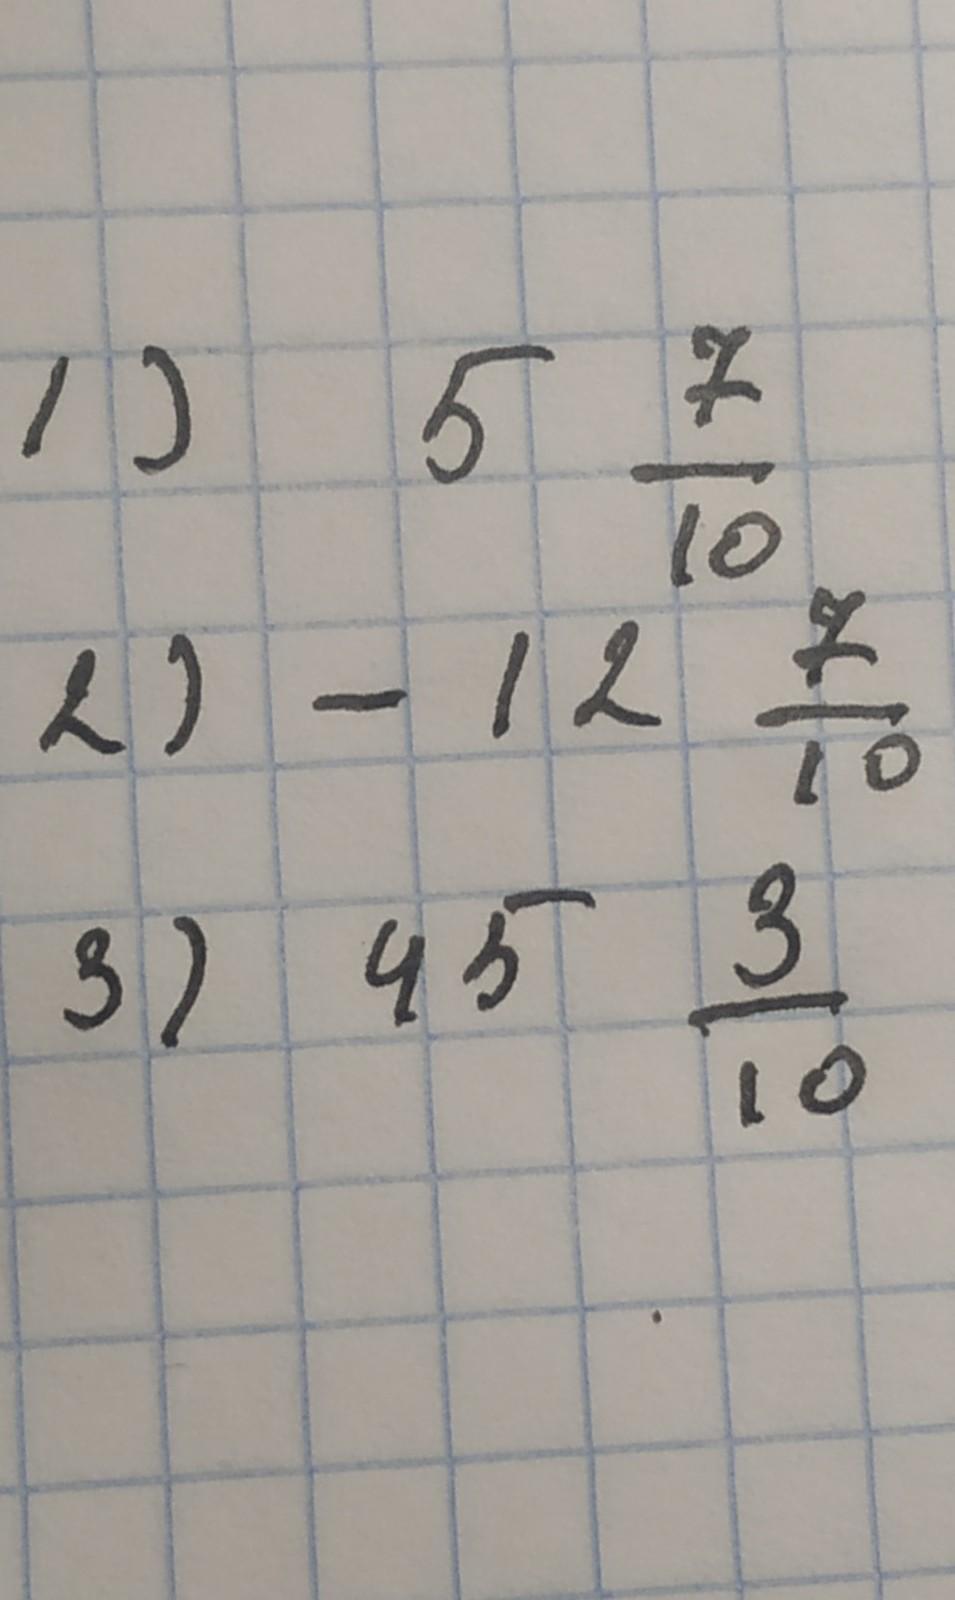 1) 5 7/10
2) - 12 7/10
3) 45 3/10